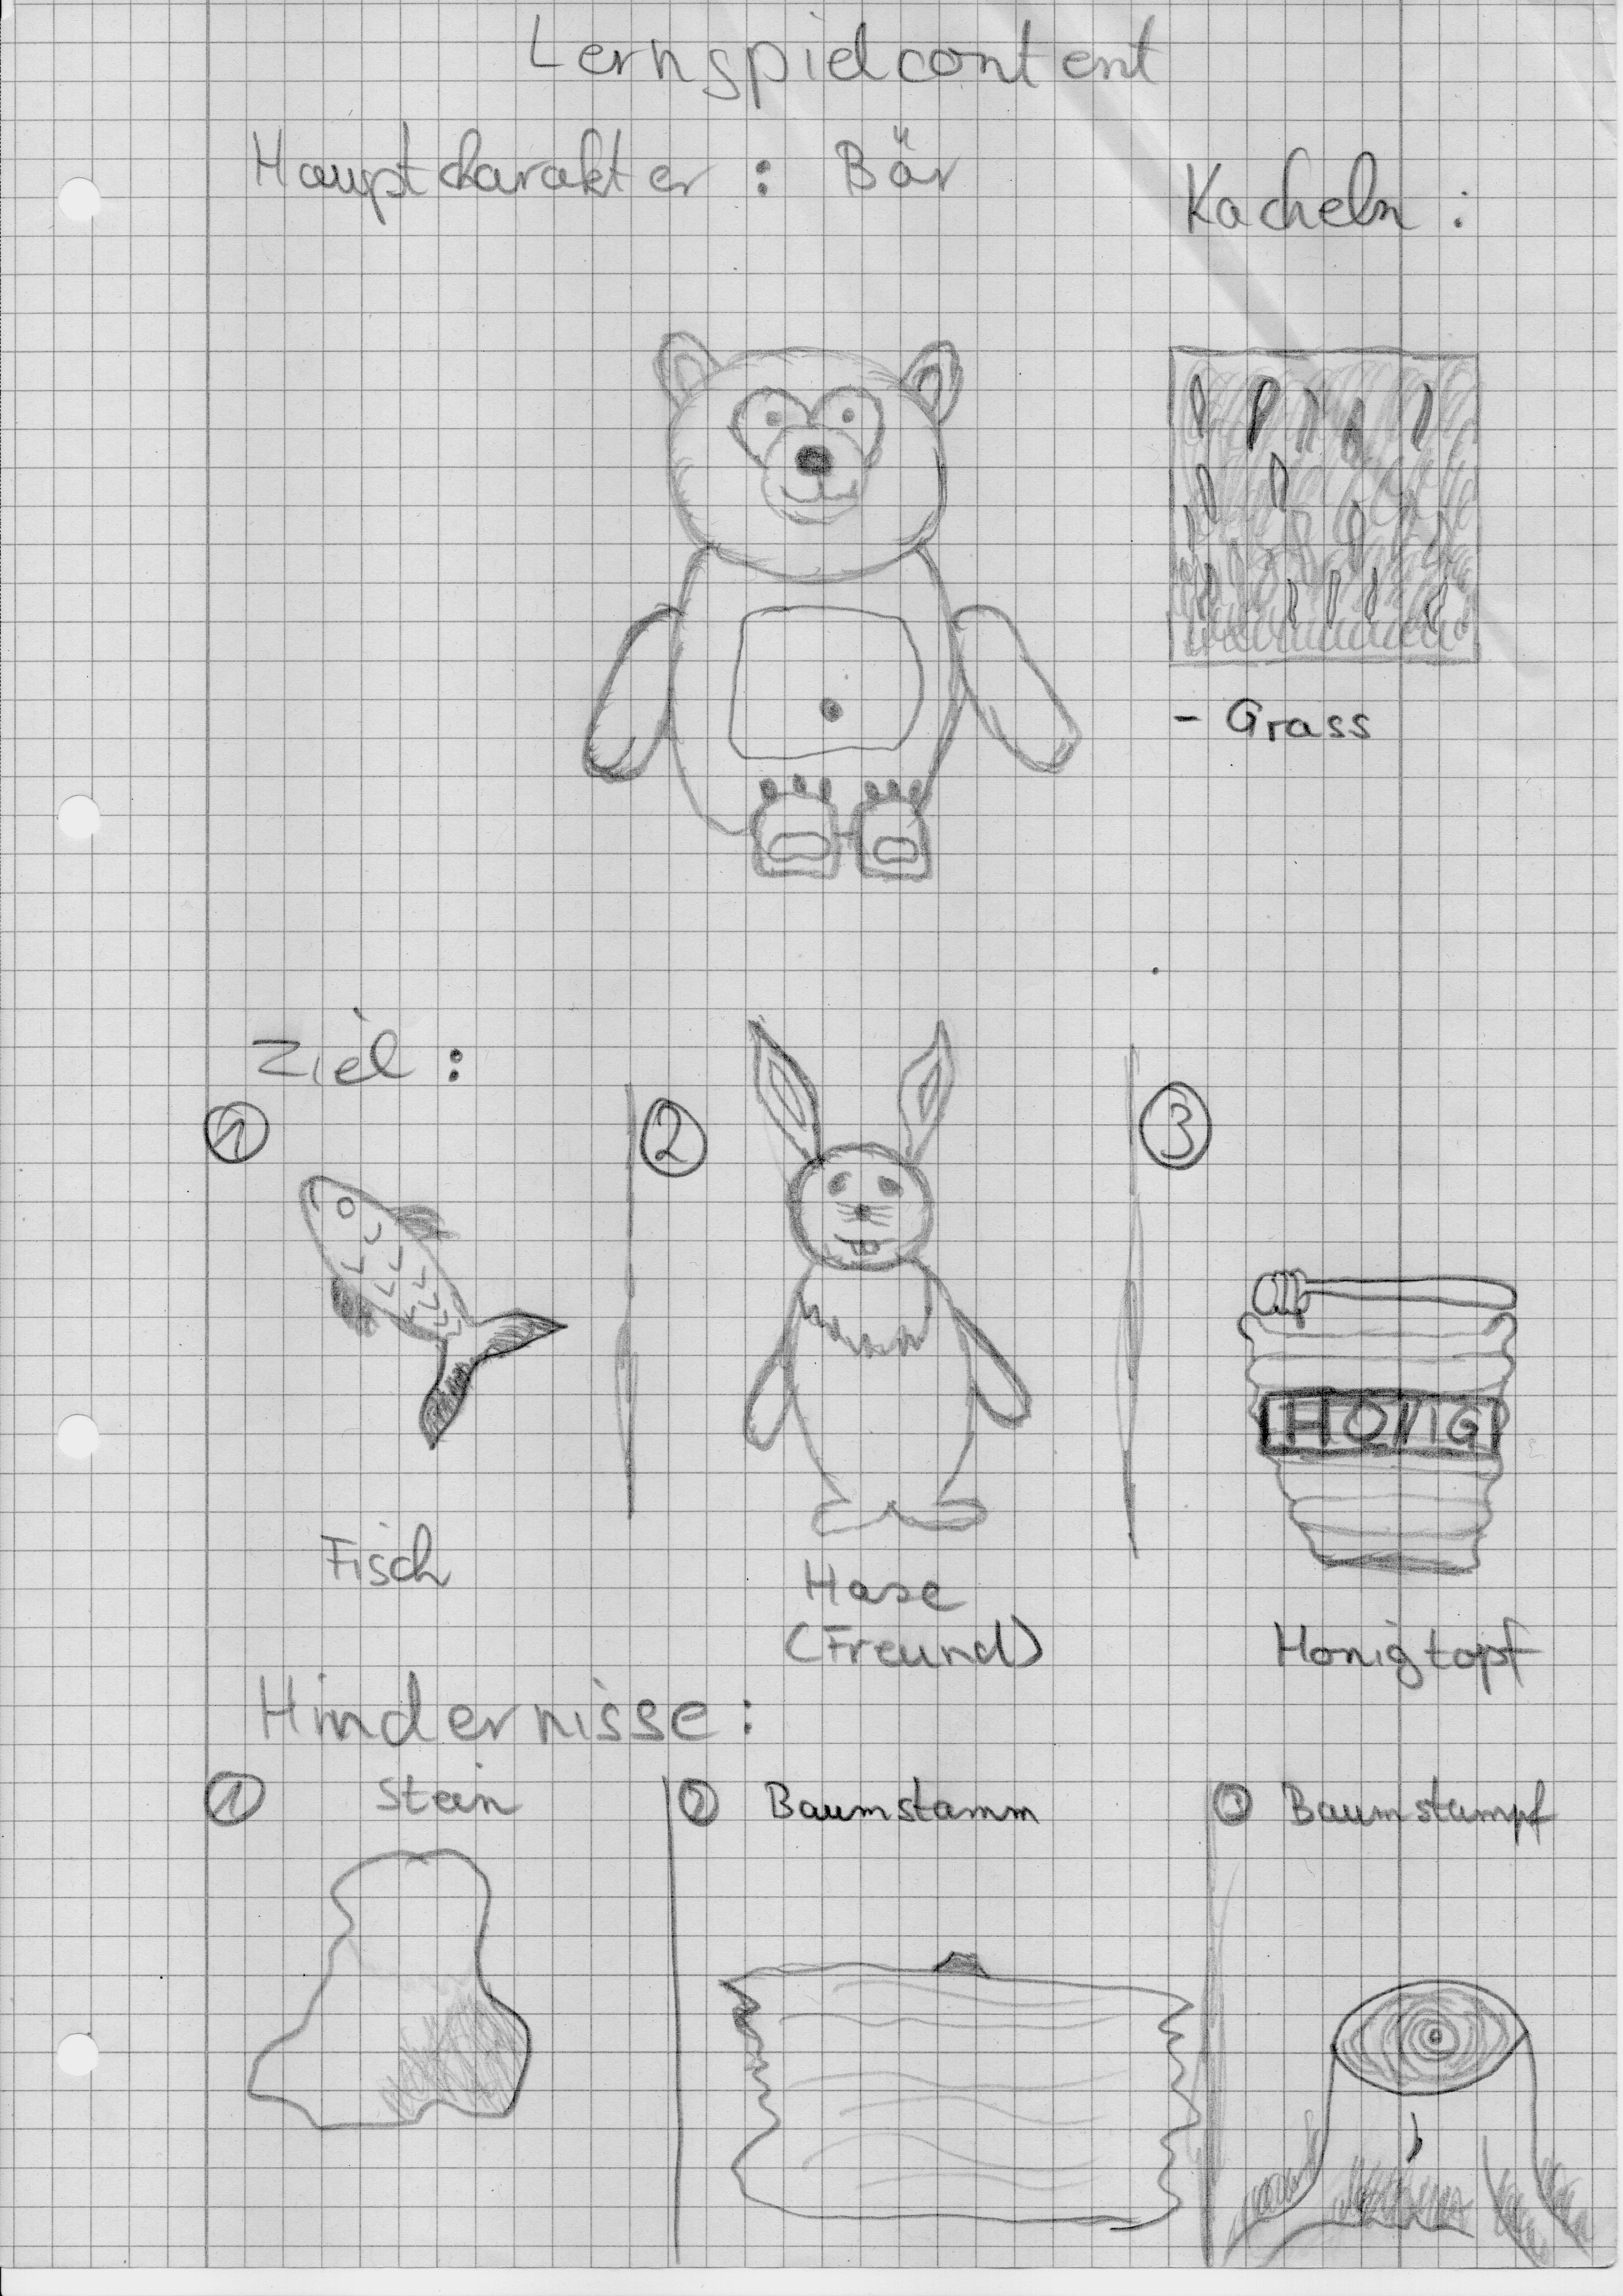 Lernspielcontent
Hauptcharakter : Bär
Kacheln :
- Grass
Ziel :
1
2
3
HONIG
Fisch
Hase
(Freund)
Honigtopf
Hindernisse :
1 Stein
2 Baumstamm
3 Baumstumpf